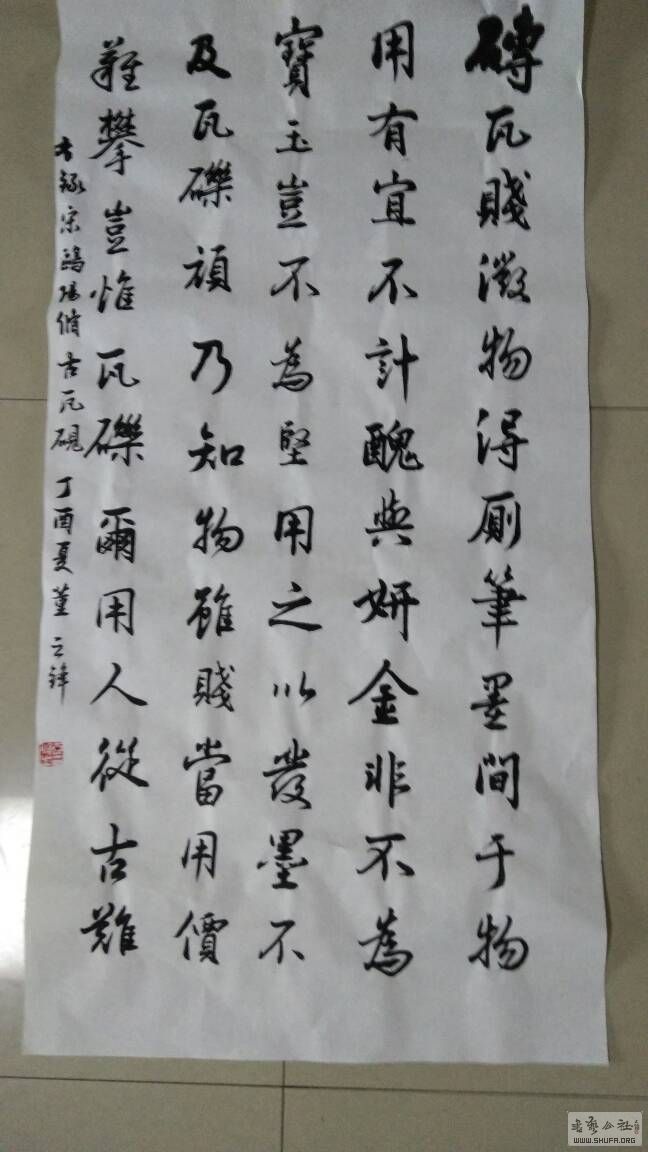 磚瓦賤微物得厠筆墨間于物
用有宜不計醜與妍金非不為
寶玉豈不為堅用之以發墨不
及瓦礫頑乃知物雖賤當用價
難攀豈惟瓦礫爾用人從古難
古錄宋歐陽脩古瓦硯 丁酉夏董之鋒
WWW.SHUFA.ORG